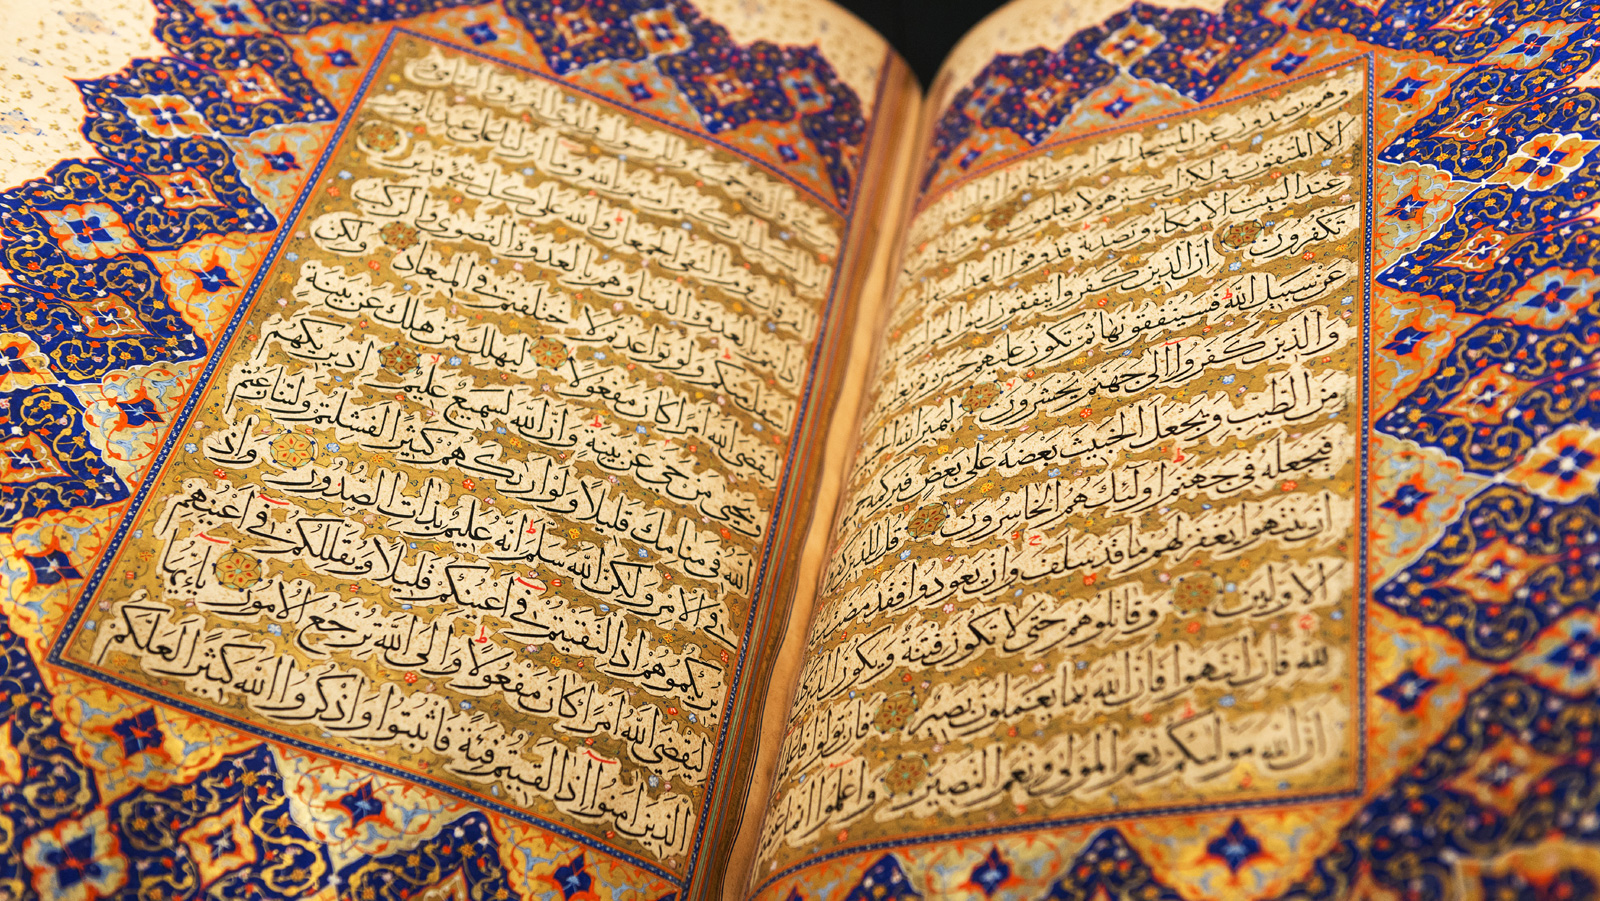 وهم يصدون عن المسجد الحرام وما كانوا
الا المتقون ولكن اكثرهم لا يعلمون
عند البيت الا مكاء وتصدية فذوقوا العذاب
تكفرون ان الذين كفروا ينفقون اموالهم
عن سبيل الله فسينفقونها ثم تكون عليهم حسرة
والذين كفروا الى جهنم يحشرون ليميز الله
من الطيب ويجعل الخبيث بعضه على بعض فيركمه
فيجعله في جهنم اولئك هم الخاسرون قل للذين
ان ينتهوا يغفر لهم ما قد سلف وان يعودوا فقد مضت
الاولين وقاتلوهم حتى لا تكون فتنة ويكون الدين
لله فان انتهوا فان الله بما يعملون بصير وان تولوا فاعلموا
ان الله موليكم نعم المولى ونعم النصير واعلموا انما غنمتم
وللرسول ولذي القربى واليتامى
ان كنتم امنتم بالله وما انزلنا على عبدنا يوم
الفرقان يوم التقى الجمعان والله على كل شيء قدير
اذ انتم بالعدوة الدنيا وهم بالعدوة القصوى والركب
اسفل منكم ولو تواعدتم لاختلفتم في الميعاد ولكن
ليقضي الله امرا كان مفعولا ليهلك من هلك عن بينة
ويحيى من حي عن بينة وان الله لسميع عليم اذ يريكهم
الله في منامك قليلا ولو اريكهم كثيرا لفشلتم ولتنازعتم
في الامر ولكن الله سلم انه عليم بذات الصدور واذ
يريكموهم اذ التقيتم في اعينكم قليلا ويقللكم في اعينهم
ليقضي الله امرا كان مفعولا والى الله ترجع الامور يا ايها
الذين امنوا اذا لقيتم فئة فاثبتوا واذكروا الله كثيرا لعلكم